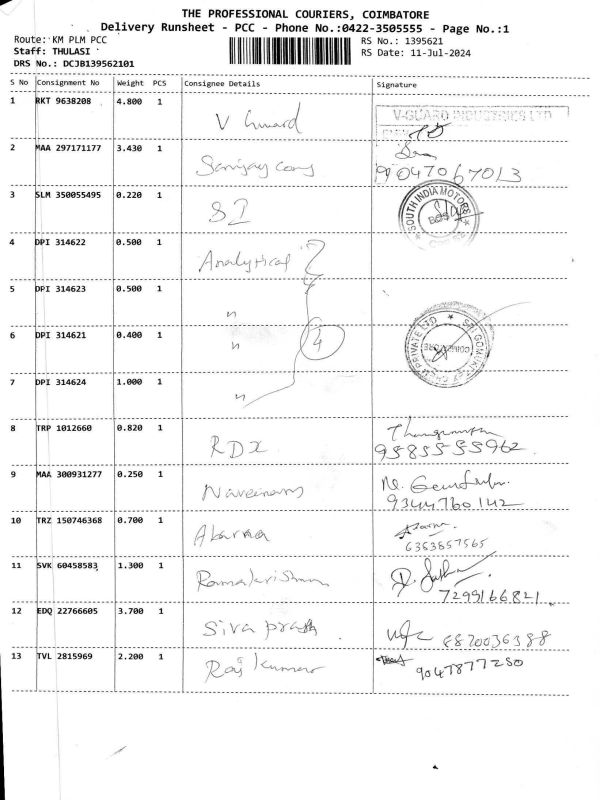 THE PROFESSIONAL COURIERS, COIMBATORE
Delivery Runsheet - PCC - Phone No.:0422-3505555 - Page No.:1
Route: KM PLM PCC
RS No.: 1395621
Staff: THULASI
RS Date: 11-Jul-2024
DRS No.: DCJB139562101
S No Consignment No Weight PCS Consignee Details Signature
1 RKT 9638208 4.800 1 V Guard V-GUARD INDUSTRIES LTD
2 MAA 297171177 3.430 1 Sanjay 9047067013
3 SLM 350055495 0.220 1 SI SOUTH INDIA MOTORS
4 DPI 314622 0.500 1 Analytical
5 DPI 314623 0.500 1 "
6 DPI 314621 0.400 1 " 4 PRIVATE LTD
7 DPI 314624 1.000 1 "
8 TRP 1012660 0.820 1 RDX 9585555962
9 MAA 300931277 0.250 1 9344760142
10 TRZ 150746368 0.700 1 6363857565
11 SVK 60458583 1.300 1 Ramakrishnan 7299166821
12 EDQ 22766605 3.700 1 Siva 6870036388
13 TVL 2815969 2.200 1 Raj kumar 9047877250